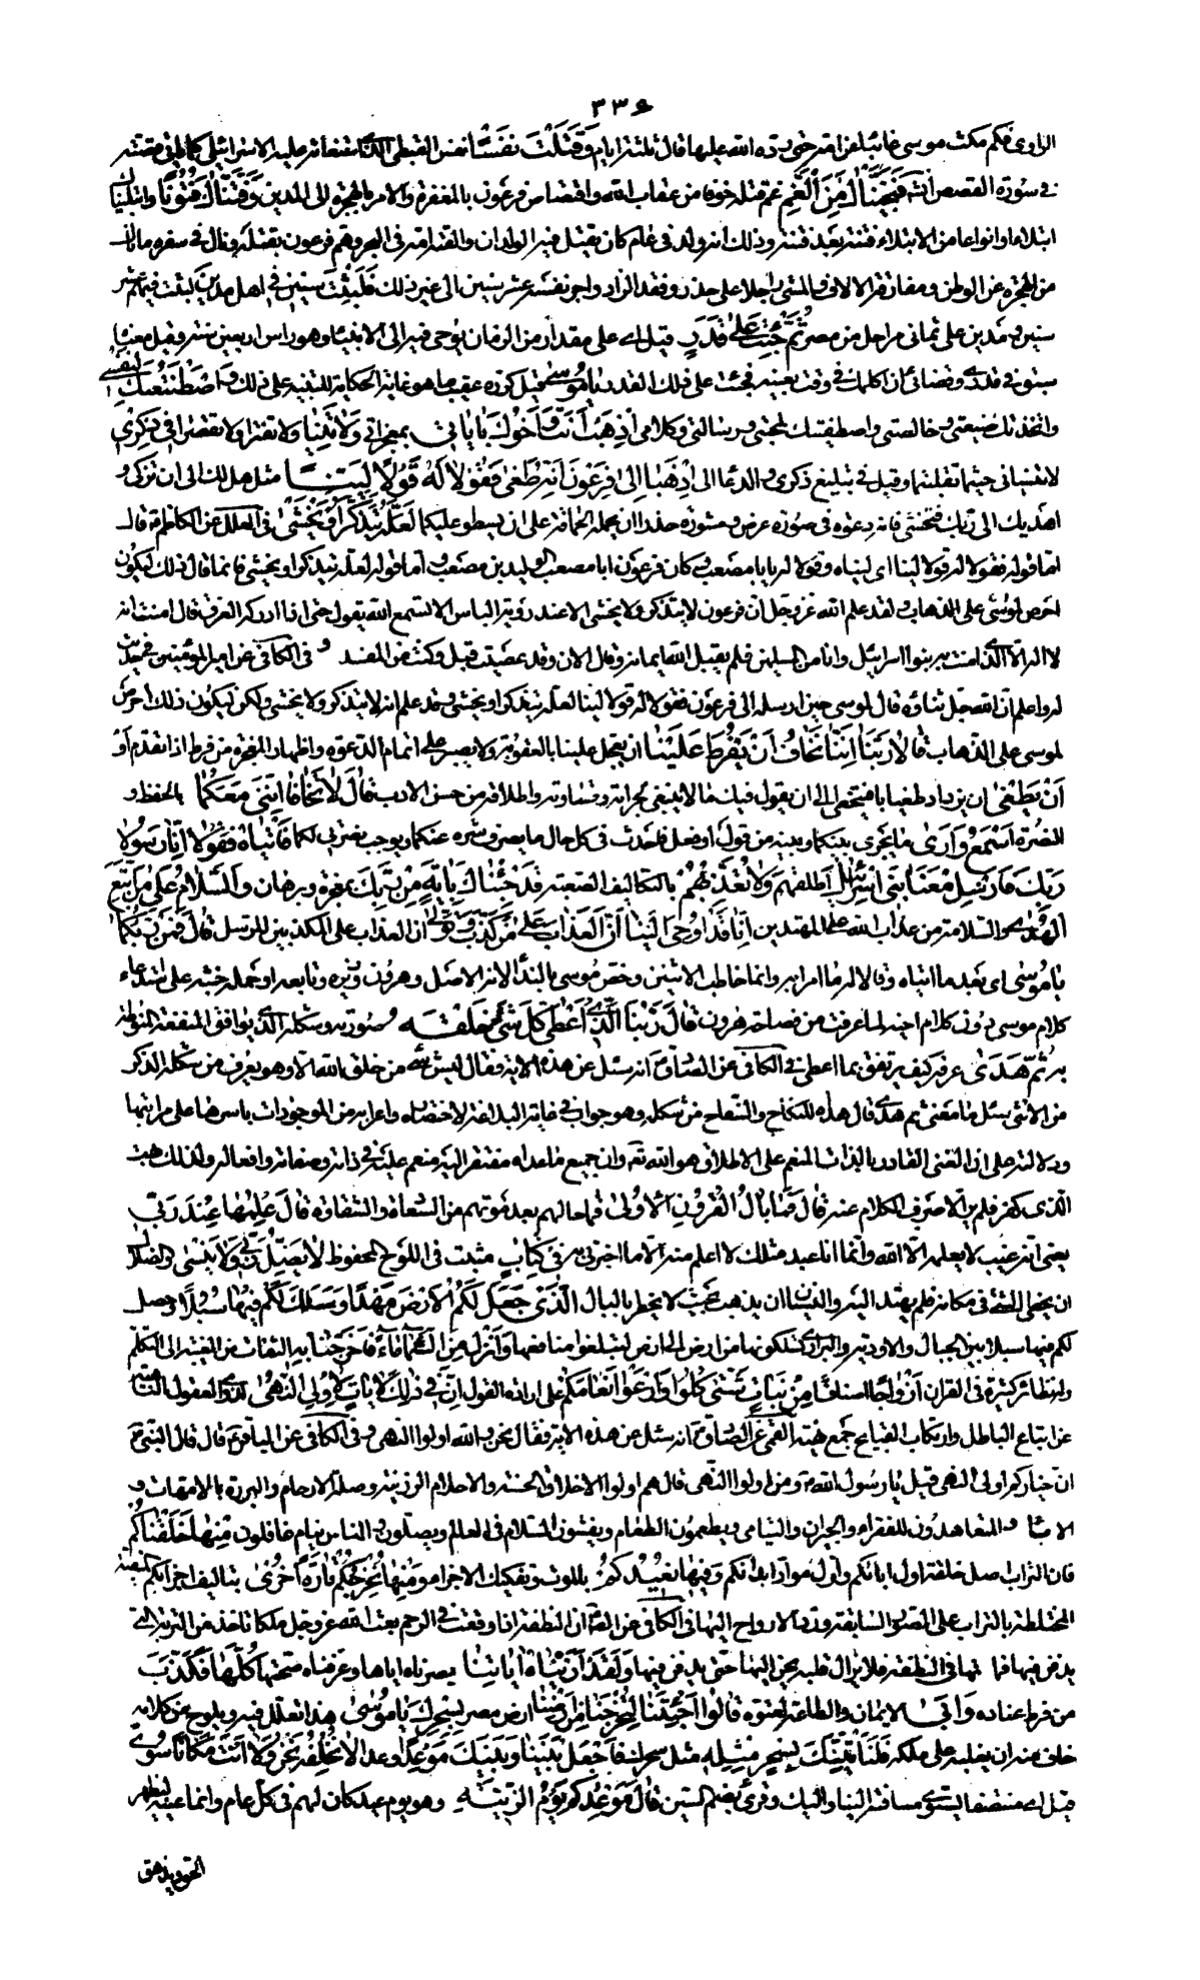 ٣٣٦
الراوي فكم مكث موسى غائبا عن امه حتى رده الله عليها قال ثلثة ايام وَقَتَلْتَ نَفْسًا نفس القبطى الذى استغاثه عليه الاسرائيلى كما يأتى قصته
فى سورة القصص انشاء الله فَنَجَّيْنَاكَ مِنَ الْغَمِّ غم قتله خوفا من عقاب الله واقتصاص فرعون بالمغفرة والامر بالهجرة الى المدين وَفَتَنَّاكَ فُتُونًا وابتليناك
ابتلاء او انواعا من الابتلاء فتنة بعد فتنة وذلك انه ولد فى عام كان يقتل فيه الولدان والقته امه فى البحر وهم فرعون بقتله ونال فى سفره ما ناله
من الهجرة عن الوطن ومفارقة الالاف والمشى راجلا على حذر وفقد الزاد واجر نفسه عشر سنين الى غير ذلك فَلَبِثْتَ سِنِينَ فِي اَهْلِ مَدْيَنَ لبثت فيهم عشر
سنين ومدين على ثمانى مراحل من مصر ثُمَّ جِئْتَ عَلَى قَدَرٍ قيل اى على مقدار من الزمان يوحى فيه الى الانبياء وهو راس اربعين سنة وقيل معناه
سبق فى قدرى وقضائى ان اكلمك فى وقت بعينه فجئت على ذلك القدر يَا مُوسَى قيل كرره عقيب ما هو غاية الحكاية للتنبيه على ذلك وَاصْطَنَعْتُكَ لِنَفْسِي
واتخذتك صنيعتى وخالصتى واصطفيتك لمحبتى ورسالتى وكلامى اِذْهَبْ اَنْتَ وَاَخُوكَ بِآيَاتِي بمعجزاتى وَلَا تَنِيَا ولا تفترا ولا تقصرا فِي ذِكْرِي
لا تنسيانى حيثما تقلبتما وقيل فى تبليغ ذكرى والدعاء الى اِذْهَبَا اِلَى فِرْعَوْنَ اِنَّهُ طَغَى فَقُولَا لَهُ قَوْلًا لَيِّنًا مثل هل لك الى ان تزكى و
اهديك الى ربك فتخشى فانه دعوة فى صورة عرض ومشورة حذرا ان يحمله الحماقة على ان يسطو عليكما لَعَلَّهُ يَتَذَكَّرُ اَوْ يَخْشَى فى العلل عن الكاظم ع قال
اما قوله فقولا له قولا لينا اى لينا له وقولا له يا با مصعب وكان فرعون ابا مصعب الوليد بن مصعب واما قوله لعله يتذكر او يخشى فانما قال ذلك ليكون
احرص لموسى على الذهاب ولقد علم الله عز وجل ان فرعون لا يتذكر ولا يخشى الا عند رؤية الباس الا تسمع الله يقول حتى اذا ادركه الغرق قال امنت انه
لا اله الا الذى امنت به بنوا اسرائيل وانا من المسلمين فلم يقبل الله ايمانه وقال الان وقد عصيت قبل وكنت من المفسد و فى الكافى عن امير المؤمنين فى حديث
له واعلم ان الله جل ثناؤه قال لموسى حين ارسله الى فرعون فقولا له قولا لينا لعله يتذكر او يخشى وقد علم انه لا يتذكر ولا يخشى ولكن ليكون ذلك احرص
لموسى على الذهاب قَالَا رَبَّنَا اِنَّنَا نَخَافُ اَنْ يَفْرُطَ عَلَيْنَا ان يعجل علينا بالعقوبة ولا يصبر على اتمام الدعوة واظهار المعجزة من فرط اذا تقدم اَوْ
اَنْ يَطْغَى ان يزداد طغيانا فيتخطى الى ان يقول فيك ما لا ينبغى لجرأته وقساوته واطلاقه من حسن الادب قَالَ لَا تَخَافَا اِنَّنِي مَعَكُمَا بالحفظ و
النصرة اَسْمَعُ وَاَرَى ما يجرى بينكما وبينه من قول او فعل فاحدث فى كل حال ما يصرف شره عنكما ويوجب نصرتى لكما فَأْتِيَاهُ فَقُولَا اِنَّا رَسُولَا
رَبِّكَ فَاَرْسِلْ مَعَنَا بَنِي اِسْرَائِيلَ اطلقهم وَلَا تُعَذِّبْهُمْ بالتكاليف الصعبة قَدْ جِئْنَاكَ بِآيَةٍ مِنْ رَبِّكَ بمعجزة وبرهان وَالسَّلَامُ عَلَى مَنِ اتَّبَعَ
الْهُدَى والسلامة من عذاب الله على المهتدين اِنَّا قَدْ اُوحِيَ اِلَيْنَا اَنَّ الْعَذَابَ عَلَى مَنْ كَذَّبَ وَتَوَلَّى ان العذاب على المكذبين للرسل قَالَ فَمَنْ رَبُّكُمَا
يَا مُوسَى اى بعد ما اتياه وقالا له ما امرا به وانما خاطب الاثنين وخص موسى بالنداء لانه الاصل وهرون وزيره وتابعه او حمله خبثه على استدعاء
كلام موسى دون كلام اخيه لما عرفت من فصاحة هرون قَالَ رَبُّنَا الَّذِي اَعْطَى كُلَّ شَيْءٍ خَلْقَهُ صورته وشكله الذى يوافق المنفعة المنوطة
به ثُمَّ هَدَى عرفه كيف يرتفق بما اعطى فى الكافى عن الصادق ع انه سئل عن هذه الاية فقال ليس شىء من خلق الله الا وهو يعرف من شكله الذكر
من الانثى سئل ما معنى ثم هدى قال هداه للنكاح والسفاح من شكله وهو جواب فى غاية البلاغة لاختصاره واعرابه عن الموجودات باسرها على مراتبها
ودلالته على ان الغنى القادر بالذات المنعم على الاطلاق هو الله تعالى وان جميع ما عداه مفتقر اليه منعم عليه فى ذاته وصفاته وافعاله ولذلك بهت
الذى كفر فلم ير الا صرف الكلام عنه قَالَ فَمَا بَالُ الْقُرُونِ الْاُولَى فما حالهم بعد موتهم من السعادة والشقاوة قَالَ عِلْمُهَا عِنْدَ رَبِّي
يعنى انه غيب لا يعلمه الا الله وانما انا عبد مثلك لا اعلم منه الا ما اخبرنى به فِي كِتَابٍ مثبت فى اللوح المحفوظ لَا يَضِلُّ رَبِّي وَلَا يَنْسَى والضلال
ان يخطى الشىء فى مكانه فلم يهتد اليه والنسيان ان يذهب بحيث لا يخطر بالبال الَّذِي جَعَلَ لَكُمُ الْاَرْضَ مَهْدًا وَسَلَكَ لَكُمْ فِيهَا سُبُلًا وحصل
لكم فيها سبلا بين الجبال والاودية والبرارى تسلكونها من ارض الى ارض لتبلغوا منافعها وَاَنْزَلَ مِنَ السَّمَاءِ مَاءً فَاَخْرَجْنَا بِهِ التفات من الغيبة الى التكلم
وله نظائر كثيرة فى القران اَزْوَاجًا اصنافا مِنْ نَبَاتٍ شَتَّى كُلُوا وَارْعَوْا اَنْعَامَكُمْ على ارادة القول اِنَّ فِي ذَلِكَ لَآيَاتٍ لِاُولِي النُّهَى لذوى العقول الناهية
عن اتباع الباطل وارتكاب القبايح جمع نهية القمى عن الصادق ع انه سئل عن هذه الاية فقال نحن والله اولوا النهى و فى الكافى عن الباقر ع قال قال النبى ص
ان خياركم اولى النهى قيل يا رسول الله ومن اولوا النهى قال هم اولوا الاخلاق الحسنة والاحلام الرزينة وصلة الارحام والبررة بالامهات و
الاباء والمتعاهدون للفقراء والجيران واليتامى ويطعمون الطعام ويفشون السلام فى العالم ويصلون والناس نيام غافلون مِنْهَا خَلَقْنَاكُمْ
فان التراب اصل خلقة اول ابائكم واول مواد ابدانكم وَفِيهَا نُعِيدُكُمْ بالموت وتفكيك الاجزاء وَمِنْهَا نُخْرِجُكُمْ تَارَةً اُخْرَى بتاليف اجزائكم المتفتتة
المختلطة بالتراب على الصورة السابقة ورد الارواح اليها فى الكافى عن الصادق ان النطفة اذا وقعت فى الرحم بعث الله عز وجل ملكا فاخذ من التربة التى
يدفن فيها فماثها فى النطفة فلا يزال قلبه يحن اليها حتى يدفن فيها وَلَقَدْ اَرَيْنَاهُ آيَاتِنَا بصرناه اياها وعرفناه صحتها كُلَّهَا فَكَذَّبَ
من فرط عناده وَاَبَى الايمان والطاعة لعتوه قَالُوا اَجِئْتَنَا لِتُخْرِجَنَا مِنْ اَرْضِنَا ارض مصر بِسِحْرِكَ يَا مُوسَى هذا تعلل فيه ويلوح من كلامه
خاف منه ان يغلبه على ملكه فَلَنَأْتِيَنَّكَ بِسِحْرٍ مِثْلِهِ مثل سحرك فَاجْعَلْ بَيْنَنَا وَبَيْنَكَ مَوْعِدًا وعدا لَا نُخْلِفُهُ نَحْنُ وَلَا اَنْتَ مَكَانًا سُوًى
قيل اى منتصفا يستوى مسافته الينا واليك وقرئ بضم السين قَالَ مَوْعِدُكُمْ يَوْمُ الزِّينَةِ وهو يوم عيد كان لهم فى كل عام وانما عينه ليظهر
الحق ويزهق